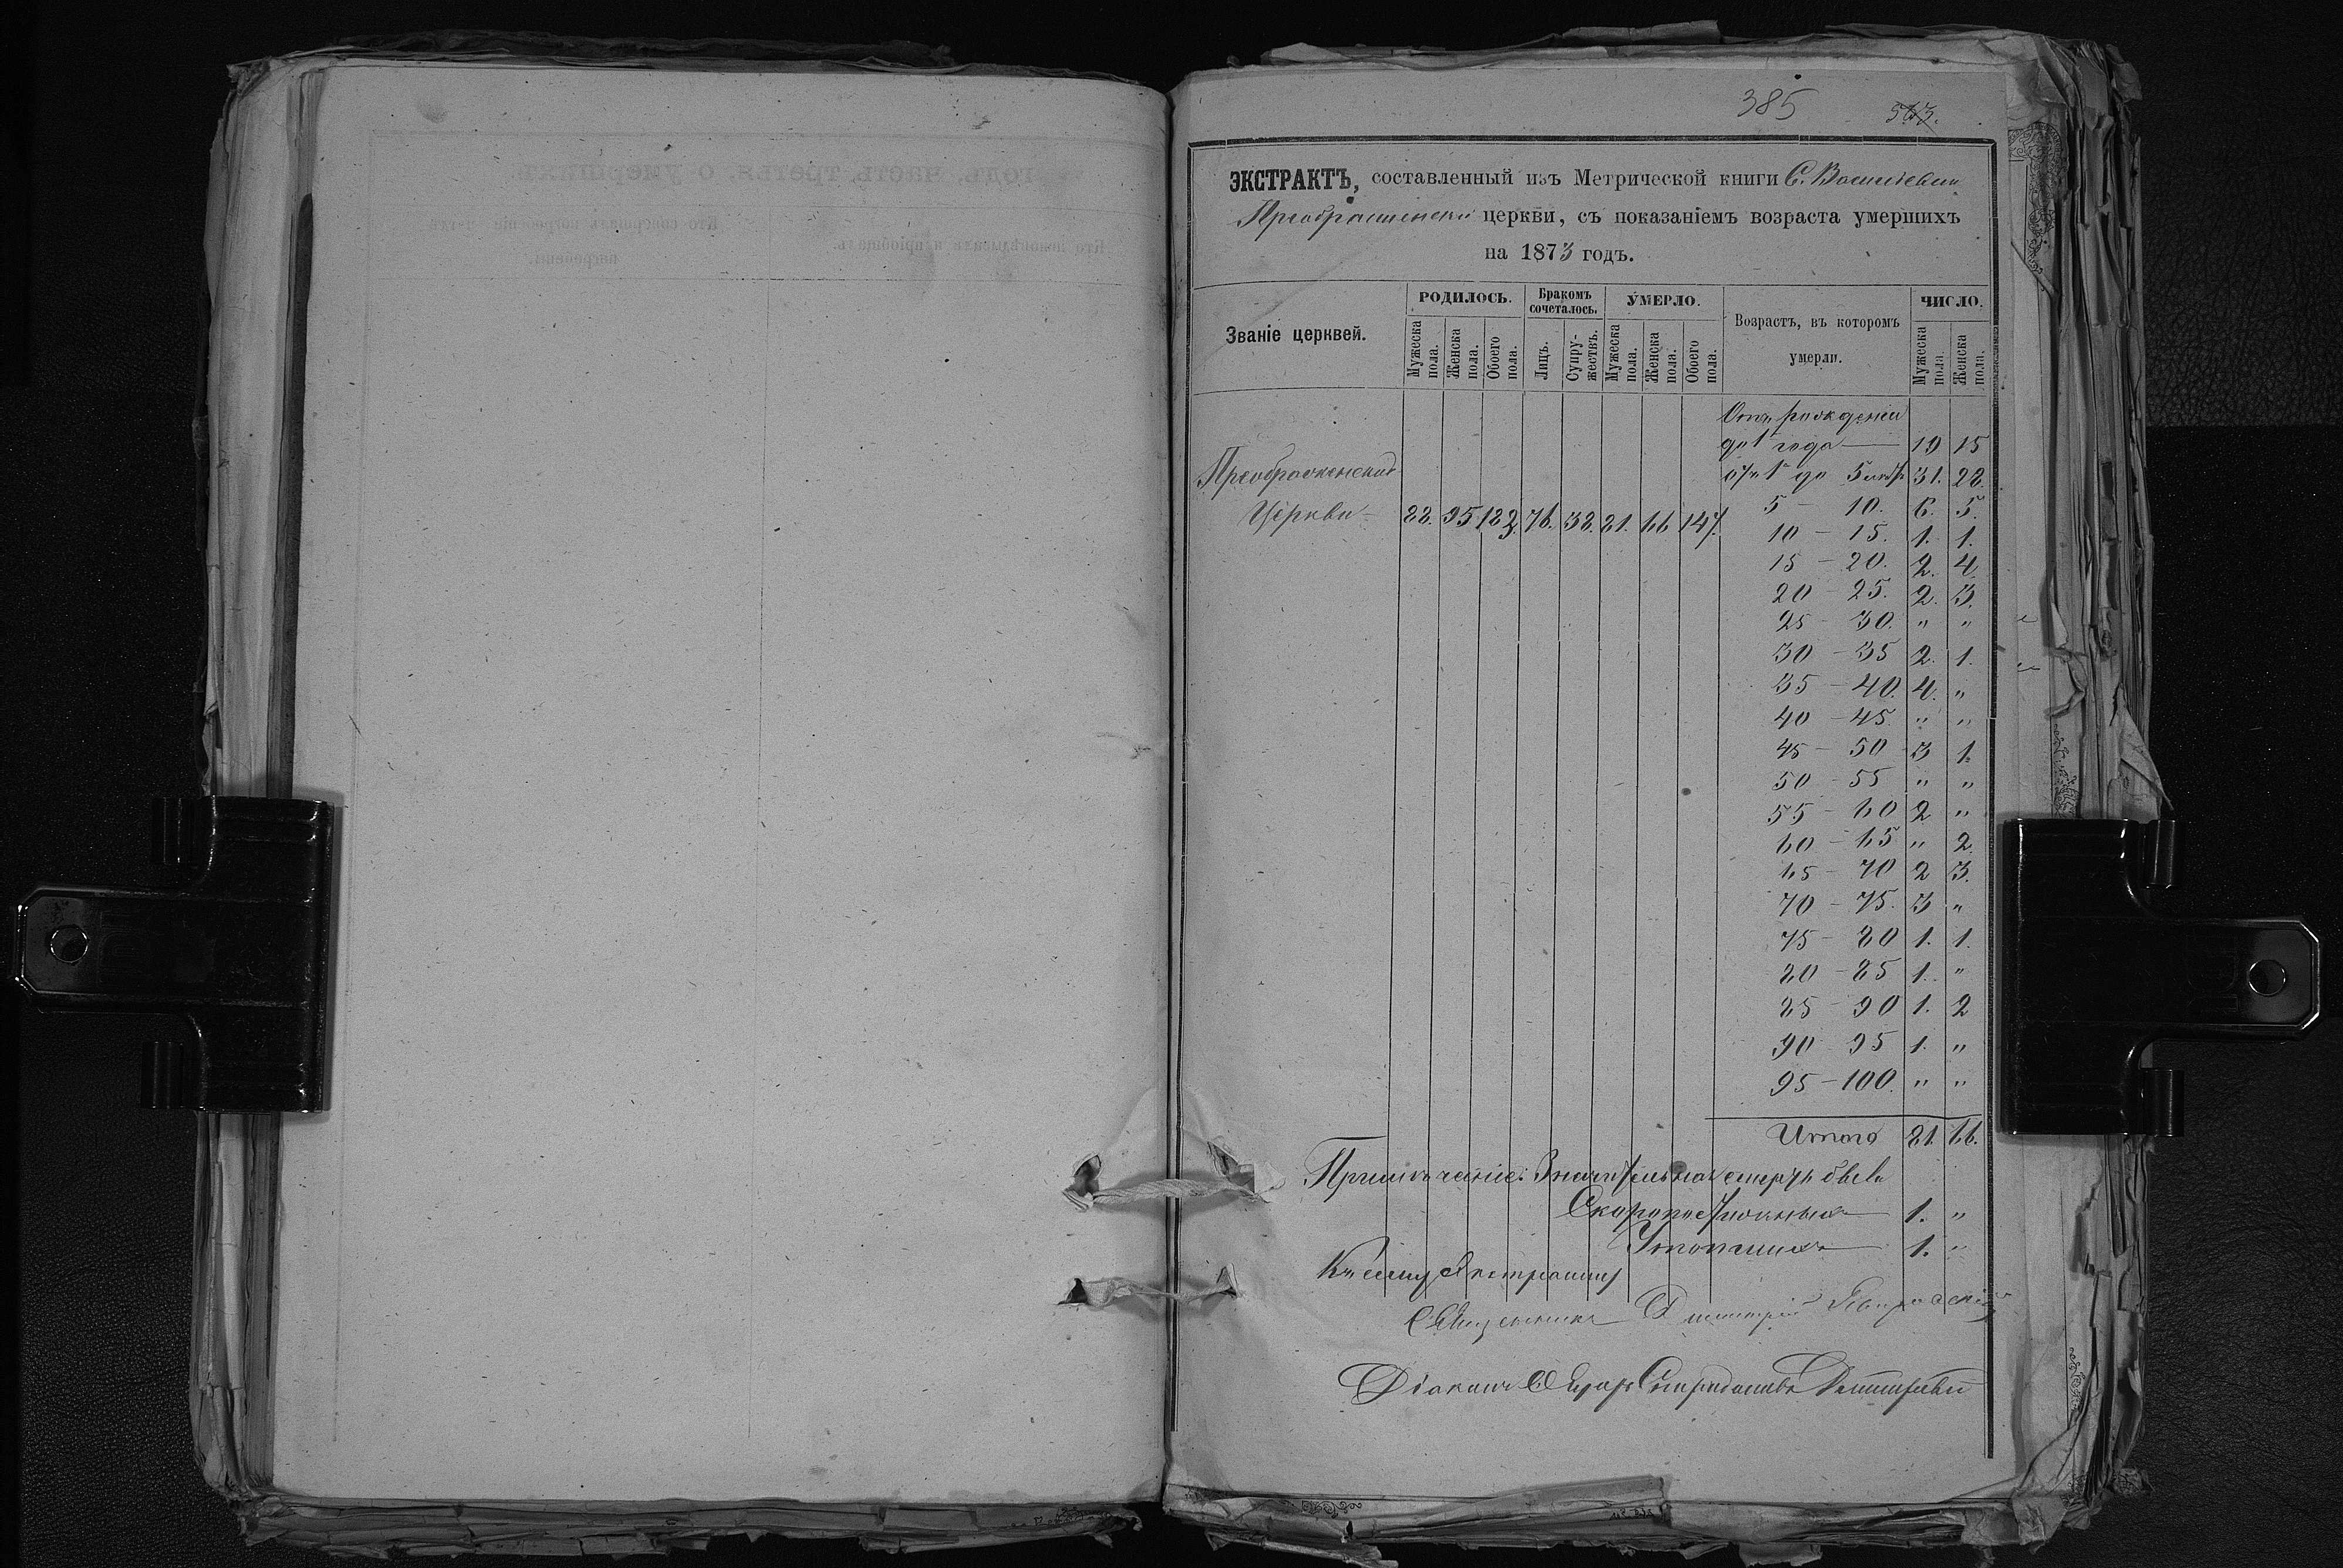 385 563.
ЭКСТРАКТЪ, составленный изъ Метрической книги С. Васильевки
Преображенской церкви, съ показаніемъ возраста умершихъ
на 1873 годъ.
Званіе церквей. РОДИЛОСЬ. Бракомъ сочеталось. УМЕРЛО. Возрастъ, въ которомъ умерли. ЧИСЛО.
Мужеска пола. Женска пола. Обоего пола. Лицъ. Супружествъ. Мужеска пола. Женска пола. Обоего пола. Мужеска пола. Женска пола.
Отъ рожденія
до 1 года 19 15
Преображенской
отъ 1 до 5 31. 28.
Церкви 88. 95. 183. 76. 38. 81. 66 147.
5 - 10. 6. 5.
10 - 15. 1. 1.
15 - 20. 2. 4.
20 - 25. 2. 3.
25 - 30. " "
30 - 35 2. 1.
35 - 40. 4. "
40 - 45. " "
45 - 50 3 1.
50 - 55 " "
55 - 60 2 "
60 - 65 " 2.
65 - 70 2 3.
70 - 75. 3 "
75 - 80 1. 1.
80 - 85 1. "
85 - 90 1. 2
90 - 95 1. "
95 - 100. " "
Итого 81. 66.
Примѣчаніе: смерть
Скоропостижныхъ 1. "
Утопшихъ 1. "
Къ сему Экстракту
Священникъ Димитрій
Діаконъ